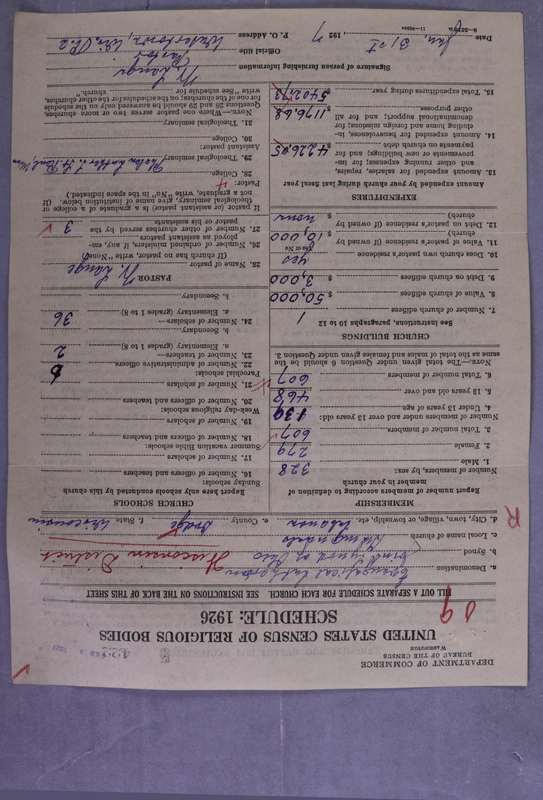 DEPARTMENT OF COMMERCE
BUREAU OF THE CENSUS
WASHINGTON
UNITED STATES CENSUS OF RELIGIOUS BODIES
SCHEDULE: 1926
FILL OUT A SEPARATE SCHEDULE FOR EACH CHURCH. SEE INSTRUCTIONS ON THE BACK OF THIS SHEET
a. Denomination Evangelical Lutheran
b. Synod Joint Synod of Ohio Wisconsin District
c. Local name of church
d. City, town, village, or township, etc. Lebanon e. County Dodge f. State Wisconsin
MEMBERSHIP
Report number of members according to definition of member in your church
Number of members, by sex:
1. Male 328
2. Female 279
3. Total number of members 607
4. Under 13 years of age 139
5. 13 years old and over 468
6. Total number of members 607
NOTE.—The total given under Question 6 should be the same as the total of males and females given under Question 3.
CHURCH BUILDINGS
See Instructions, paragraphs 10 to 12
7. Number of church edifices 1
8. Value of church edifices $ 50,000
9. Debt on church edifices $ 3,000
10. Does church own pastor's residence yes
11. Value of pastor's residence (if owned by church) $ 10,000
12. Debt on pastor's residence (if owned by church) $ none
EXPENDITURES
Amount expended by your church during last fiscal year
13. Amount expended for salaries, repairs, and other running expenses; for improvements or new buildings; and for payments on church debt $ 4226.05
14. Amount expended for benevolences, including home and foreign missions; for denominational support; and for all other purposes $ 1176.68
15. Total expenditures during year $ 5402.73
CHURCH SCHOOLS
Report here only schools conducted by this church
Sunday schools:
16. Number of officers and teachers
17. Number of scholars
Summer vacation Bible schools:
18. Number of officers and teachers
19. Number of scholars
Week-day religious schools:
20. Number of officers and teachers
21. Number of scholars
Parochial schools:
22. Number of administrative officers
23. Number of teachers—
a. Elementary (grades 1 to 8) 2
b. Secondary
24. Number of scholars—
a. Elementary (grades 1 to 8) 36
b. Secondary
PASTOR
25. Name of pastor W. Lange
(If church has no pastor, write "None")
26. Number of ordained ministers, if any, employed as assistant pastors
27. Number of other churches served by the pastor or his assistants 3
If pastor (or assistant pastor) is a graduate of a college or theological seminary, give name of institution below. (If not a graduate, write "No" in the space indicated.)
Pastor:
28. College
29. Theological seminary Luther S. St Paul, Minn
Assistant pastor:
30. College
31. Theological seminary
NOTE.—Where one pastor serves two or more churches, Questions 28 and 29 should be answered only on the schedule for one of the churches; on the schedules for the other churches, write "See schedule for church."
Signature of person furnishing information W. Lange
Official title Pastor
P. O. Address Watertown, Wis. R. 2
Date Jan. 31st, 1927